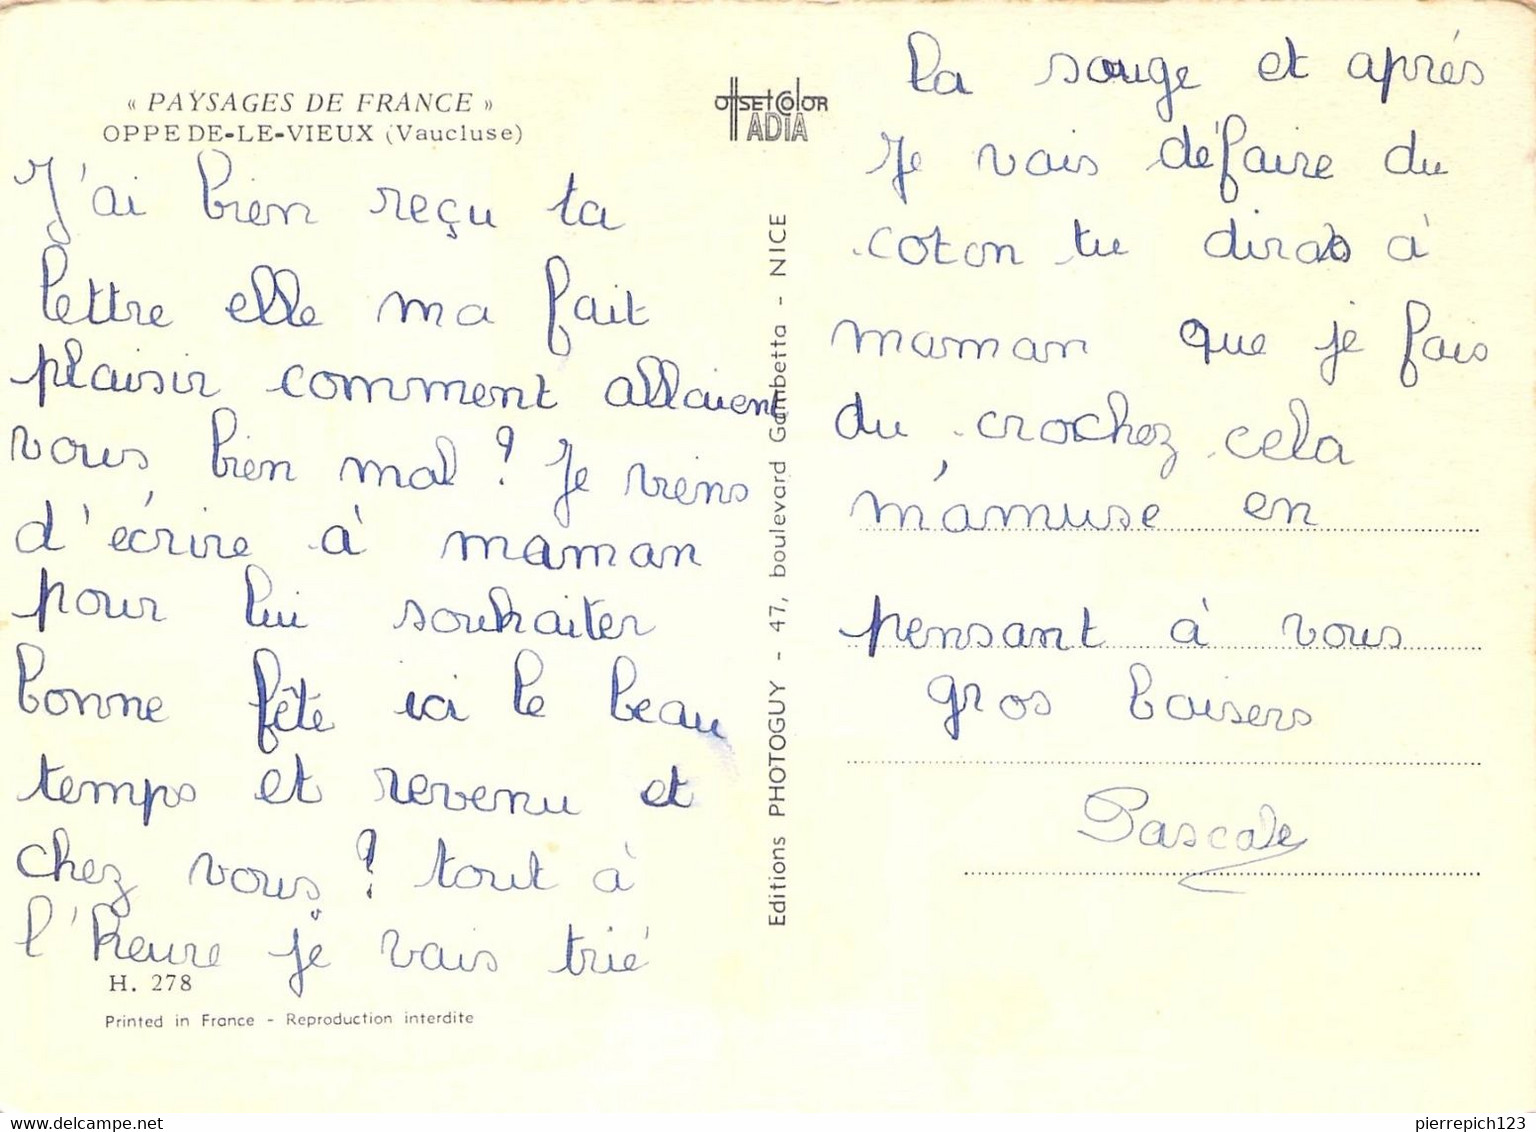 « PAYSAGES DE FRANCE »
OPPEDE-LE-VIEUX (Vaucluse)
J'ai bien reçu ta
lettre elle ma fait
plaisir comment allaient
vous bien mal ? Je viens
d'écrire à maman
pour lui souhaiter
bonne fête ici le beau
temps et revenu et
chez vous ? tout à
l'heure je vais trié
H. 278
Printed in France - Reproduction interdite
OFFSETCOLOR
ADIA
Editions PHOTOGUY - 47, boulevard Gambetta - NICE
la sauge et après
Je vais défaire du
coton tu diras à
maman que je fais
du crochez cela
m'amuse en
pensant à vous
gros baisers
Pascale
pierrepich123